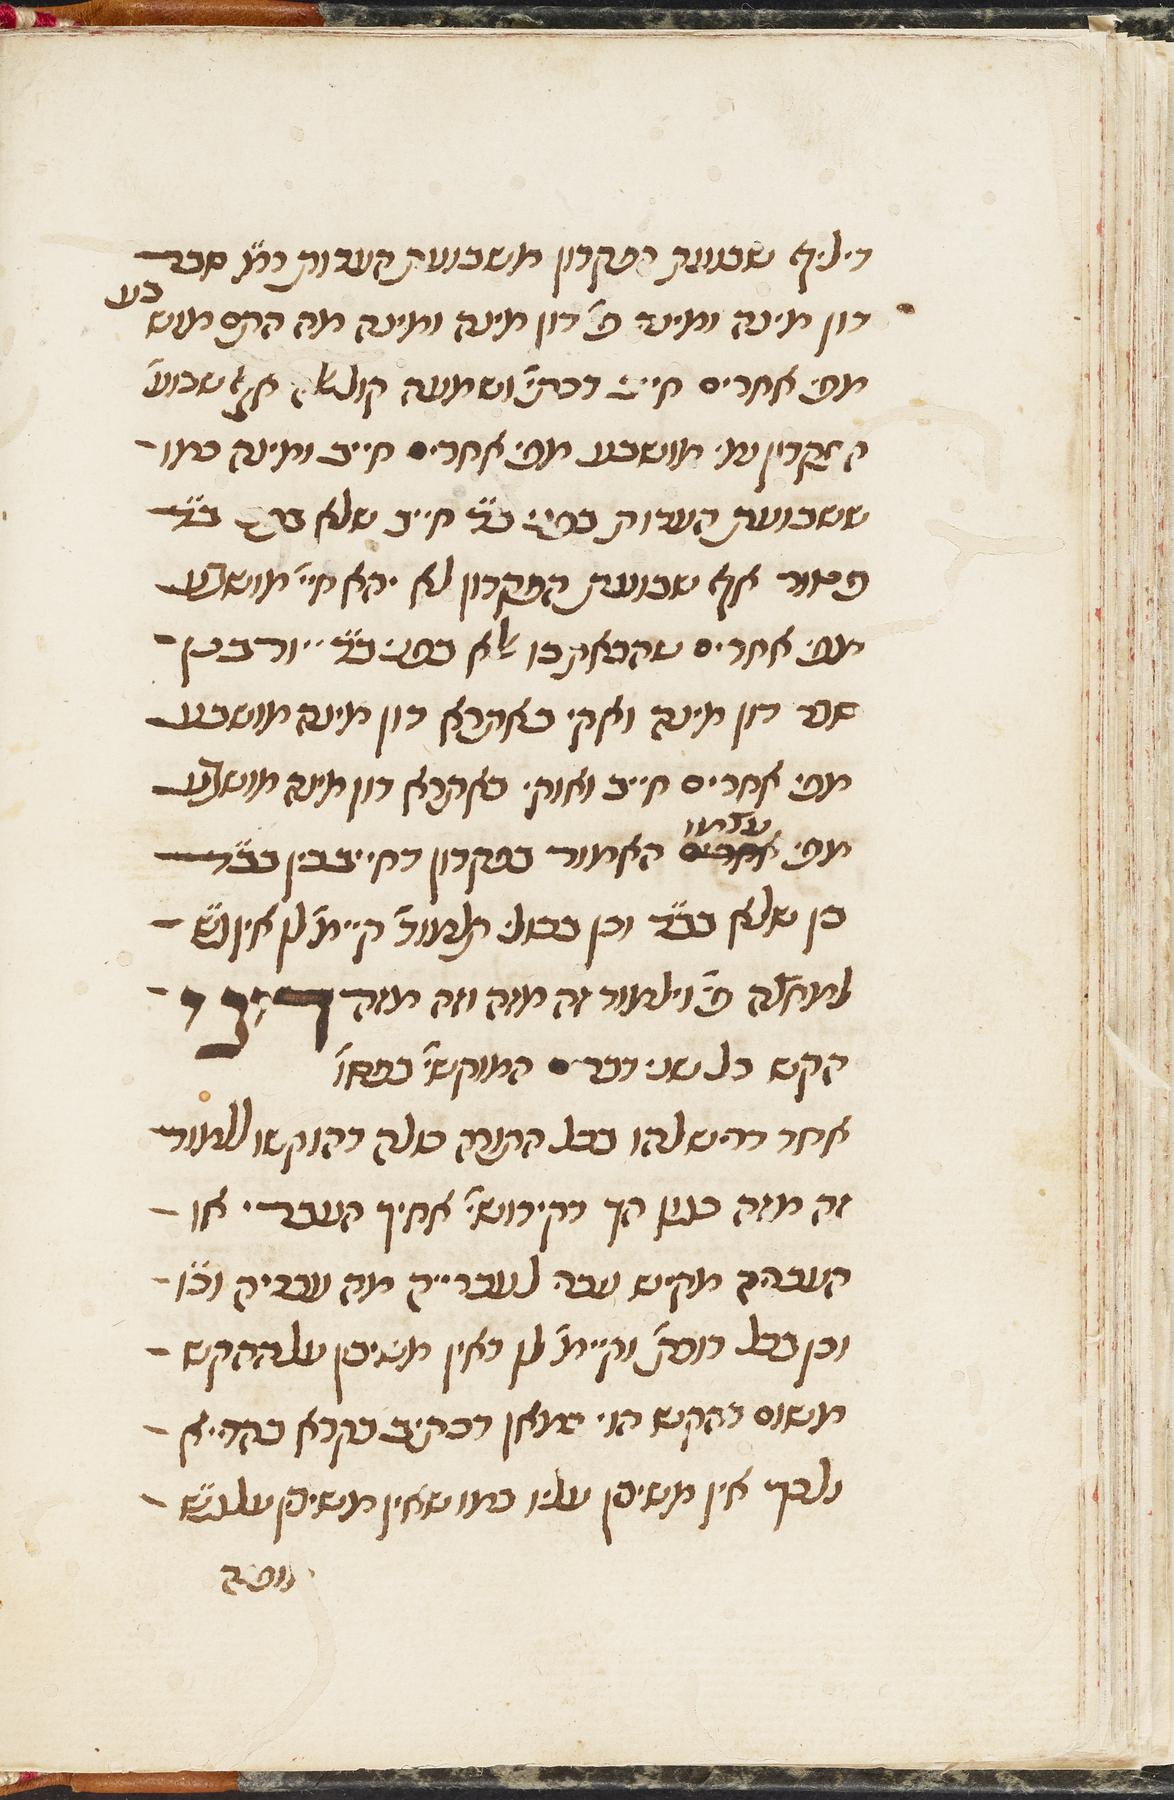 דיליף שבועת הפקדון משבועת העדות ר״מ סבר
דון מינה ומינה פי׳ דון מינה ומינה מה התם מושבע
מפי אחרים חייב דכתי׳ ושמעה קול אלה אף שבוע׳
הפקדון נמי מושבע מפי אחרים חייב ומינה כמו
ששבועת העדות בפני ב״ד חייב שלא בפני ב״ד
פטור אף שבועת הפקדון לא יהא חיי׳ מושבע
מפי אחרים שהבאתנו אלא בפני ב״ד ורבנין
סבר דון מינה ואוקי באתרא דון מינה מושבע
מפי אחרים חייב ואוקי באתרא דון מינה מושבע
מפי עצמו האמור בפקדון דחייב בין בב״ד
בין שלא בב״ד וכן בכולי תלמוד׳ קיימ׳ לן אין ג״ש
למחצה פי׳ וילמוד זה מזה וזה מזה דיני
הקש כל שני דברים המוקשי׳ בפסו׳
אחד דהישלהו בכל התורה כולה דהוקשו ללמוד
זה מזה כגון הך דקידושי׳ אחיך העברי או
העבריה מקיש עברי לעברייה מה עבריה וכו׳
וכן בכל דוכתי׳ וקיימ׳ לן דאין משיבין על ההקש
משום דהקש הוי כמאן דכתיב בקרא בהדיא
הלכך אין משיבין עליו כמו שאין משיבין על ג״ש
מופנה